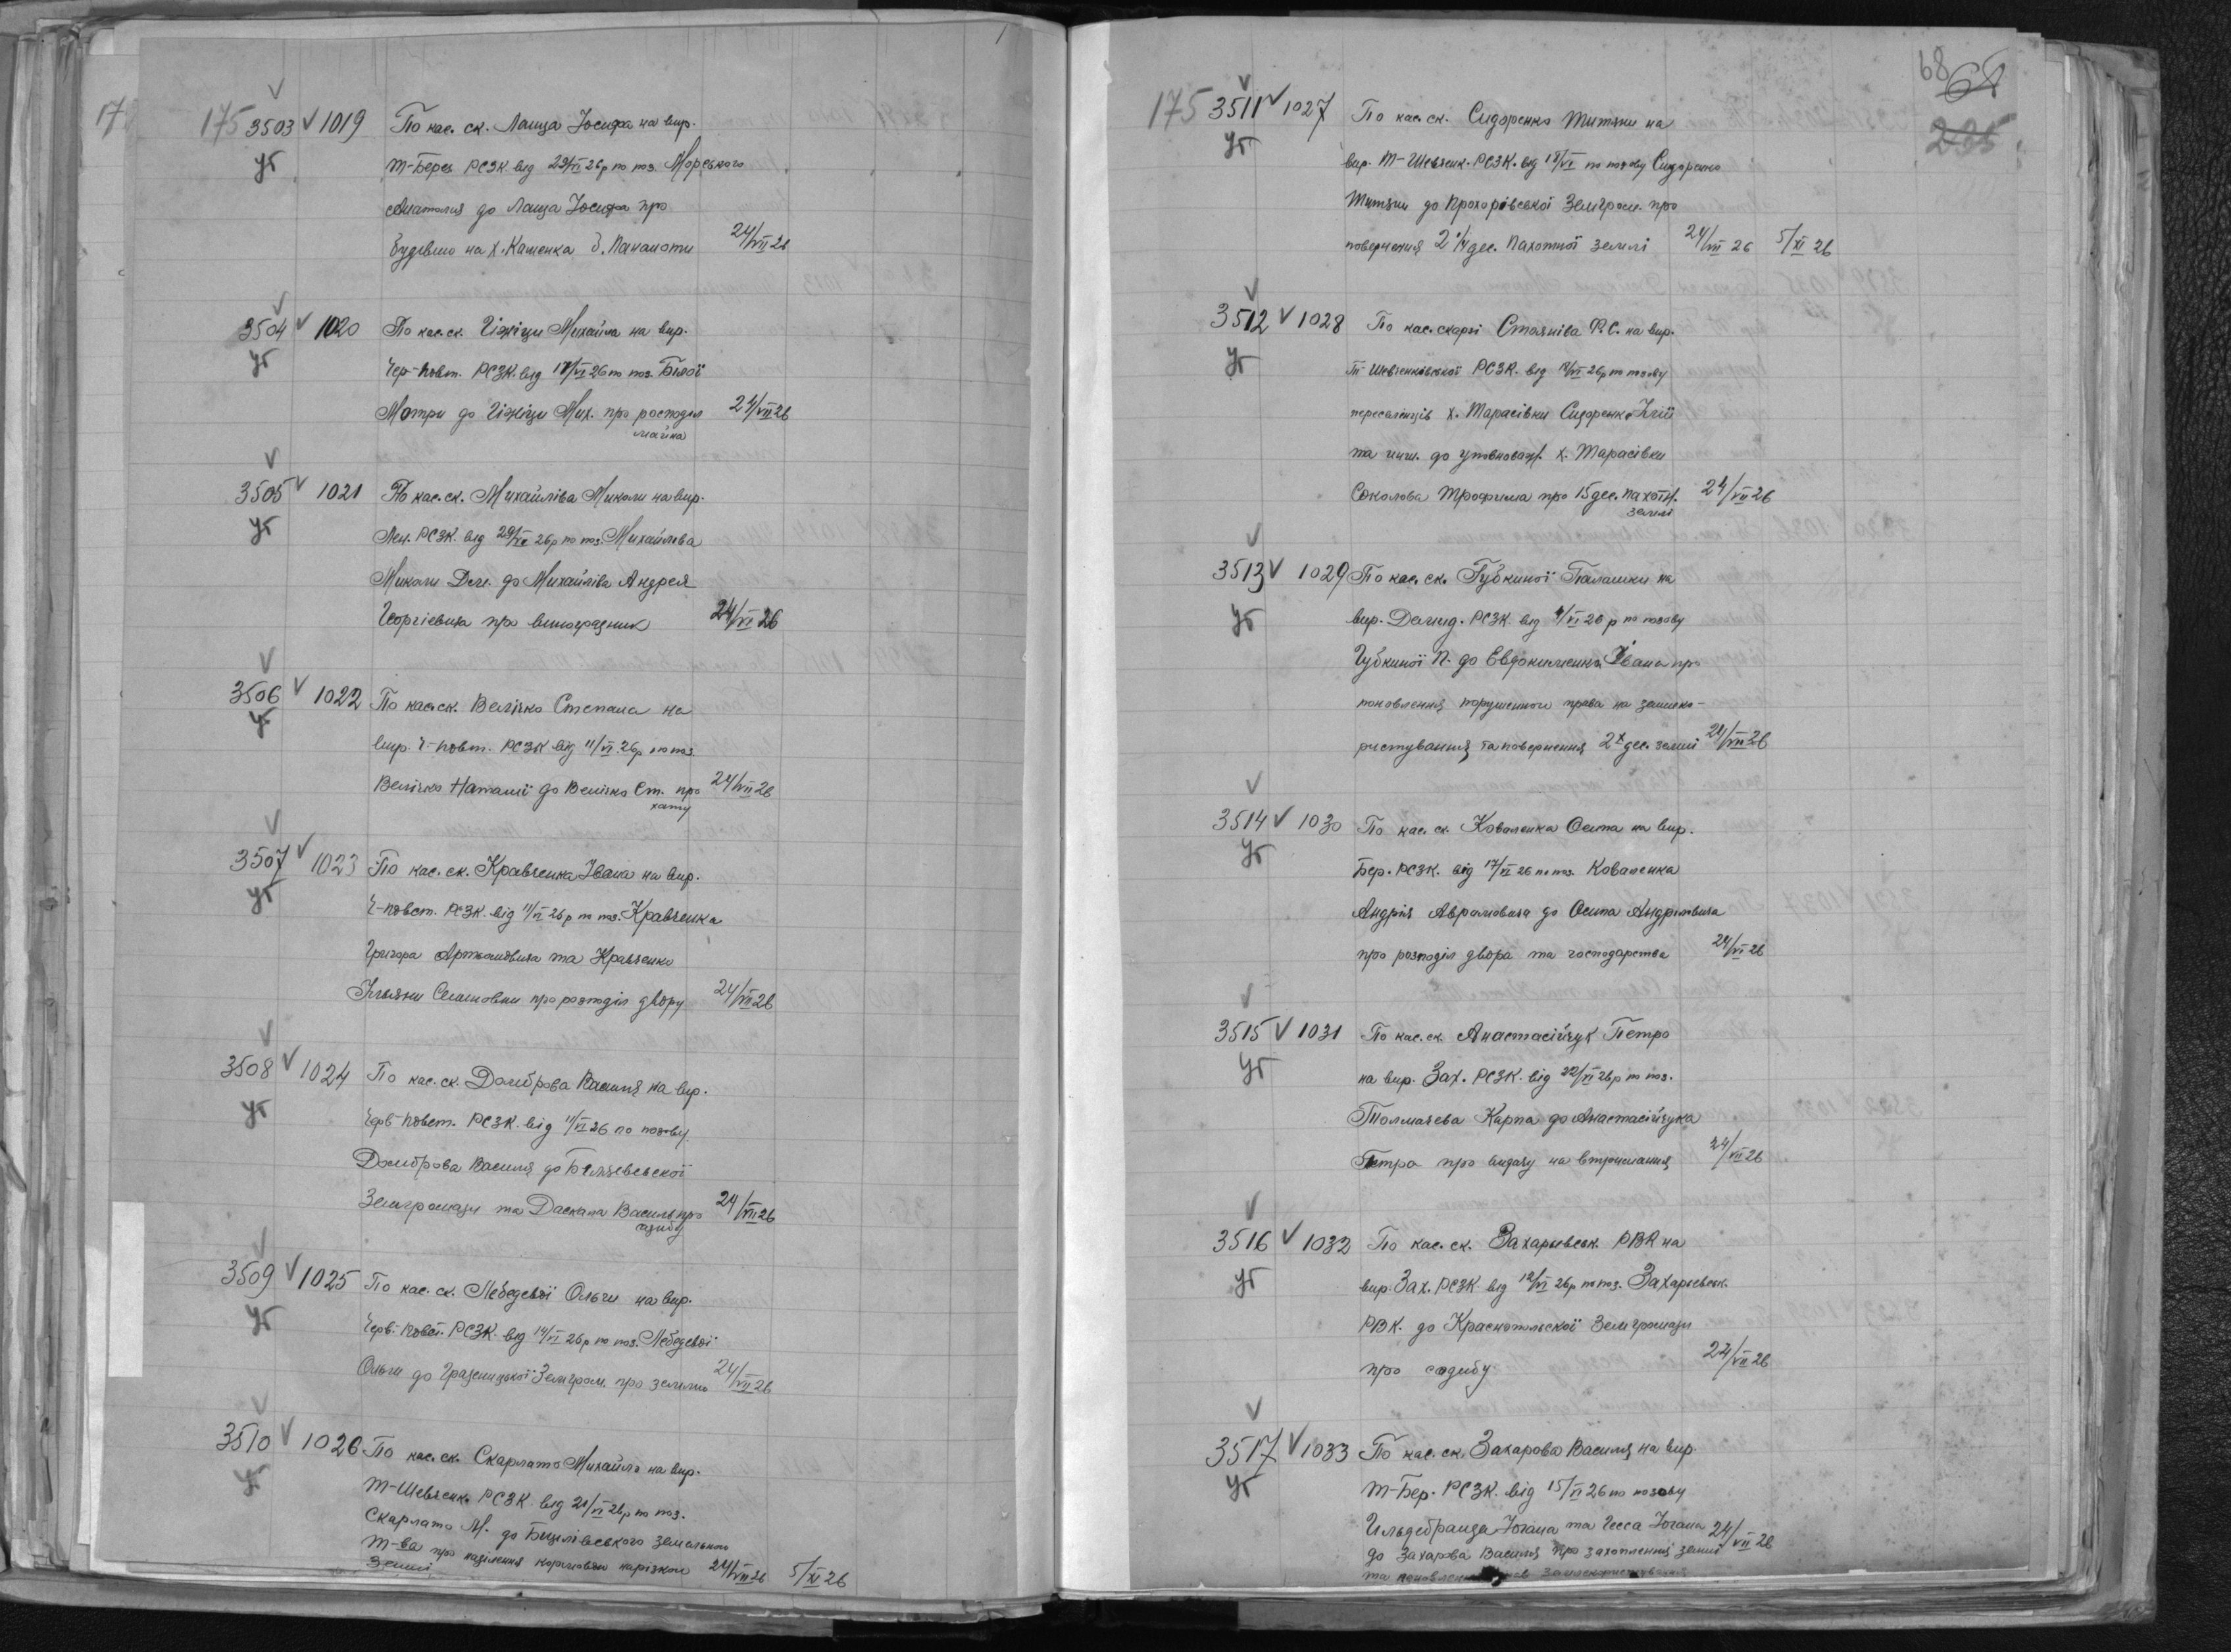 175 3503 V 1019 По кас. ск. Ланца Йосифа на вир.
уг Т-Берез РСЗК. від 29/VI 26 р по поз. Морського
Анатолия до Ланца Йосифа про
будівлю на х. Каменка б. Панаіоти 24/VII 26
3504 V 1020 По кас. ск. Гіжіци Михайла на вир.
уг Чер-Повст. РСЗК. від 18/VI 26 по поз. Білої
Мотри до Гіжіци Мих. про росподіл 24/VII 26
майна
3505 V 1021 По кас. ск. Михайліва Миколи на вир.
уг Лен. РСЗК. від 29/VI 26 р по поз. Михайліва
Миколи до Михайліва Андрея
Георгієвича про виноградник 24/VI 26
3506 V 1022 По кас. ск. Велічко Степана на
уг вир. Ч-Повст. РСЗК від 11/VI 26 р по поз.
Велічко Наталії до Велічко Ст. про 24/VII 26
хату
3507 V 1023 По кас. ск. Кравченка Івана на вир.
уг Ч-Повст. РСЗК. від 11/VI 26 р по поз. Кравченка
Григора Артемовича та Кравченко
Семеновни про розподіл двору 24/VII 26
3508 V 1024 По кас. ск. Домброва Василя на вир.
уг Черв-Повст. РСЗК. від 11/VI 26 по позову
Домброва Василя до Біляевської
Земгромади та Даскала Василь про 24/VII 26
садибу
3509 V 1025 По кас. ск. Лебедевої Ольги на вир.
уг Черв.-Повст. РСЗК. від 14/VI 26 р по поз. Лебедевої
Ольги до Граденицької Земгром. про землю 24/VII 26
3510 V 1026 По кас. ск. Скарлато Михайла на вир.
уг Т-Шевченк. РСЗК. від 21/VI 26 р по поз.
Скарлато М. до Бицилівського земельного
т-ва про наділення кормовою нарізкою 24/VII 26 5/XI 26
землі
68
175 3511 V 1027 По кас. ск. Сидоренко Титяни на
уг вир. Т-Шевченк. РСЗК. від 18/VI по позову Сидоренко
Титяни до Прохорівської Земгром. про
повернення 2 1/4 дес. пахотної землі 24/VII 26 5/XI 26
3512 V 1028 По кас. скарзі Стояніва Ф. С. на вир.
уг Т Шевченківської РСЗК. від /VI 26 р по позову
переселенців х. Тарасівки Сидоренко Юлії
та инш. до уповноваж. х. Тарасівки
Соколова Трофима про 15 дес. пахотн. 24/VII 26
землі
3513 V 1029 По кас. ск. Губкиної Палашки на
уг вир. Демид. РСЗК. від 4/VI 26 р по позову
Губкиної П. до Евдокименка Івана про
поновлення порушеного права на землеко-
ристування та повернення 2х дес. землі 24/VII 26
3514 V 1030 По кас. ск. Коваленка Осипа на вир.
уг Бер. РСЗК. від 17/VI 26 по поз. Коваленка
Андрія Аврамовича до Осипа Андрієвича
про розподіл двора та господарства 24/VI 26
3515 V 1031 По кас. ск. Анастасійчук Петро
уг на вир. Зах. РСЗК. від 22/VI 26 р по поз.
Толмачева Карпа до Анастасійчука
Петра про видачу на втримання 24/VII 26
3516 V 1032 По кас. ск. Захарьевськ. РВК на
уг вир. Зах. РСЗК від 12/VI 26 р по поз. Захарьевськ.
РВК. до Краснопільської Земгромади
про садибу 24/VII 26
3517 V 1033 По кас. ск. Захарова Василя на вир.
уг Т-Бер. РСЗК. від 15/VI 26 по позову
Гильдебранда Йогана та Гесса Йогана 24/VII 26
до Захарова Василя про захоплення землі
та поновлення землекористування